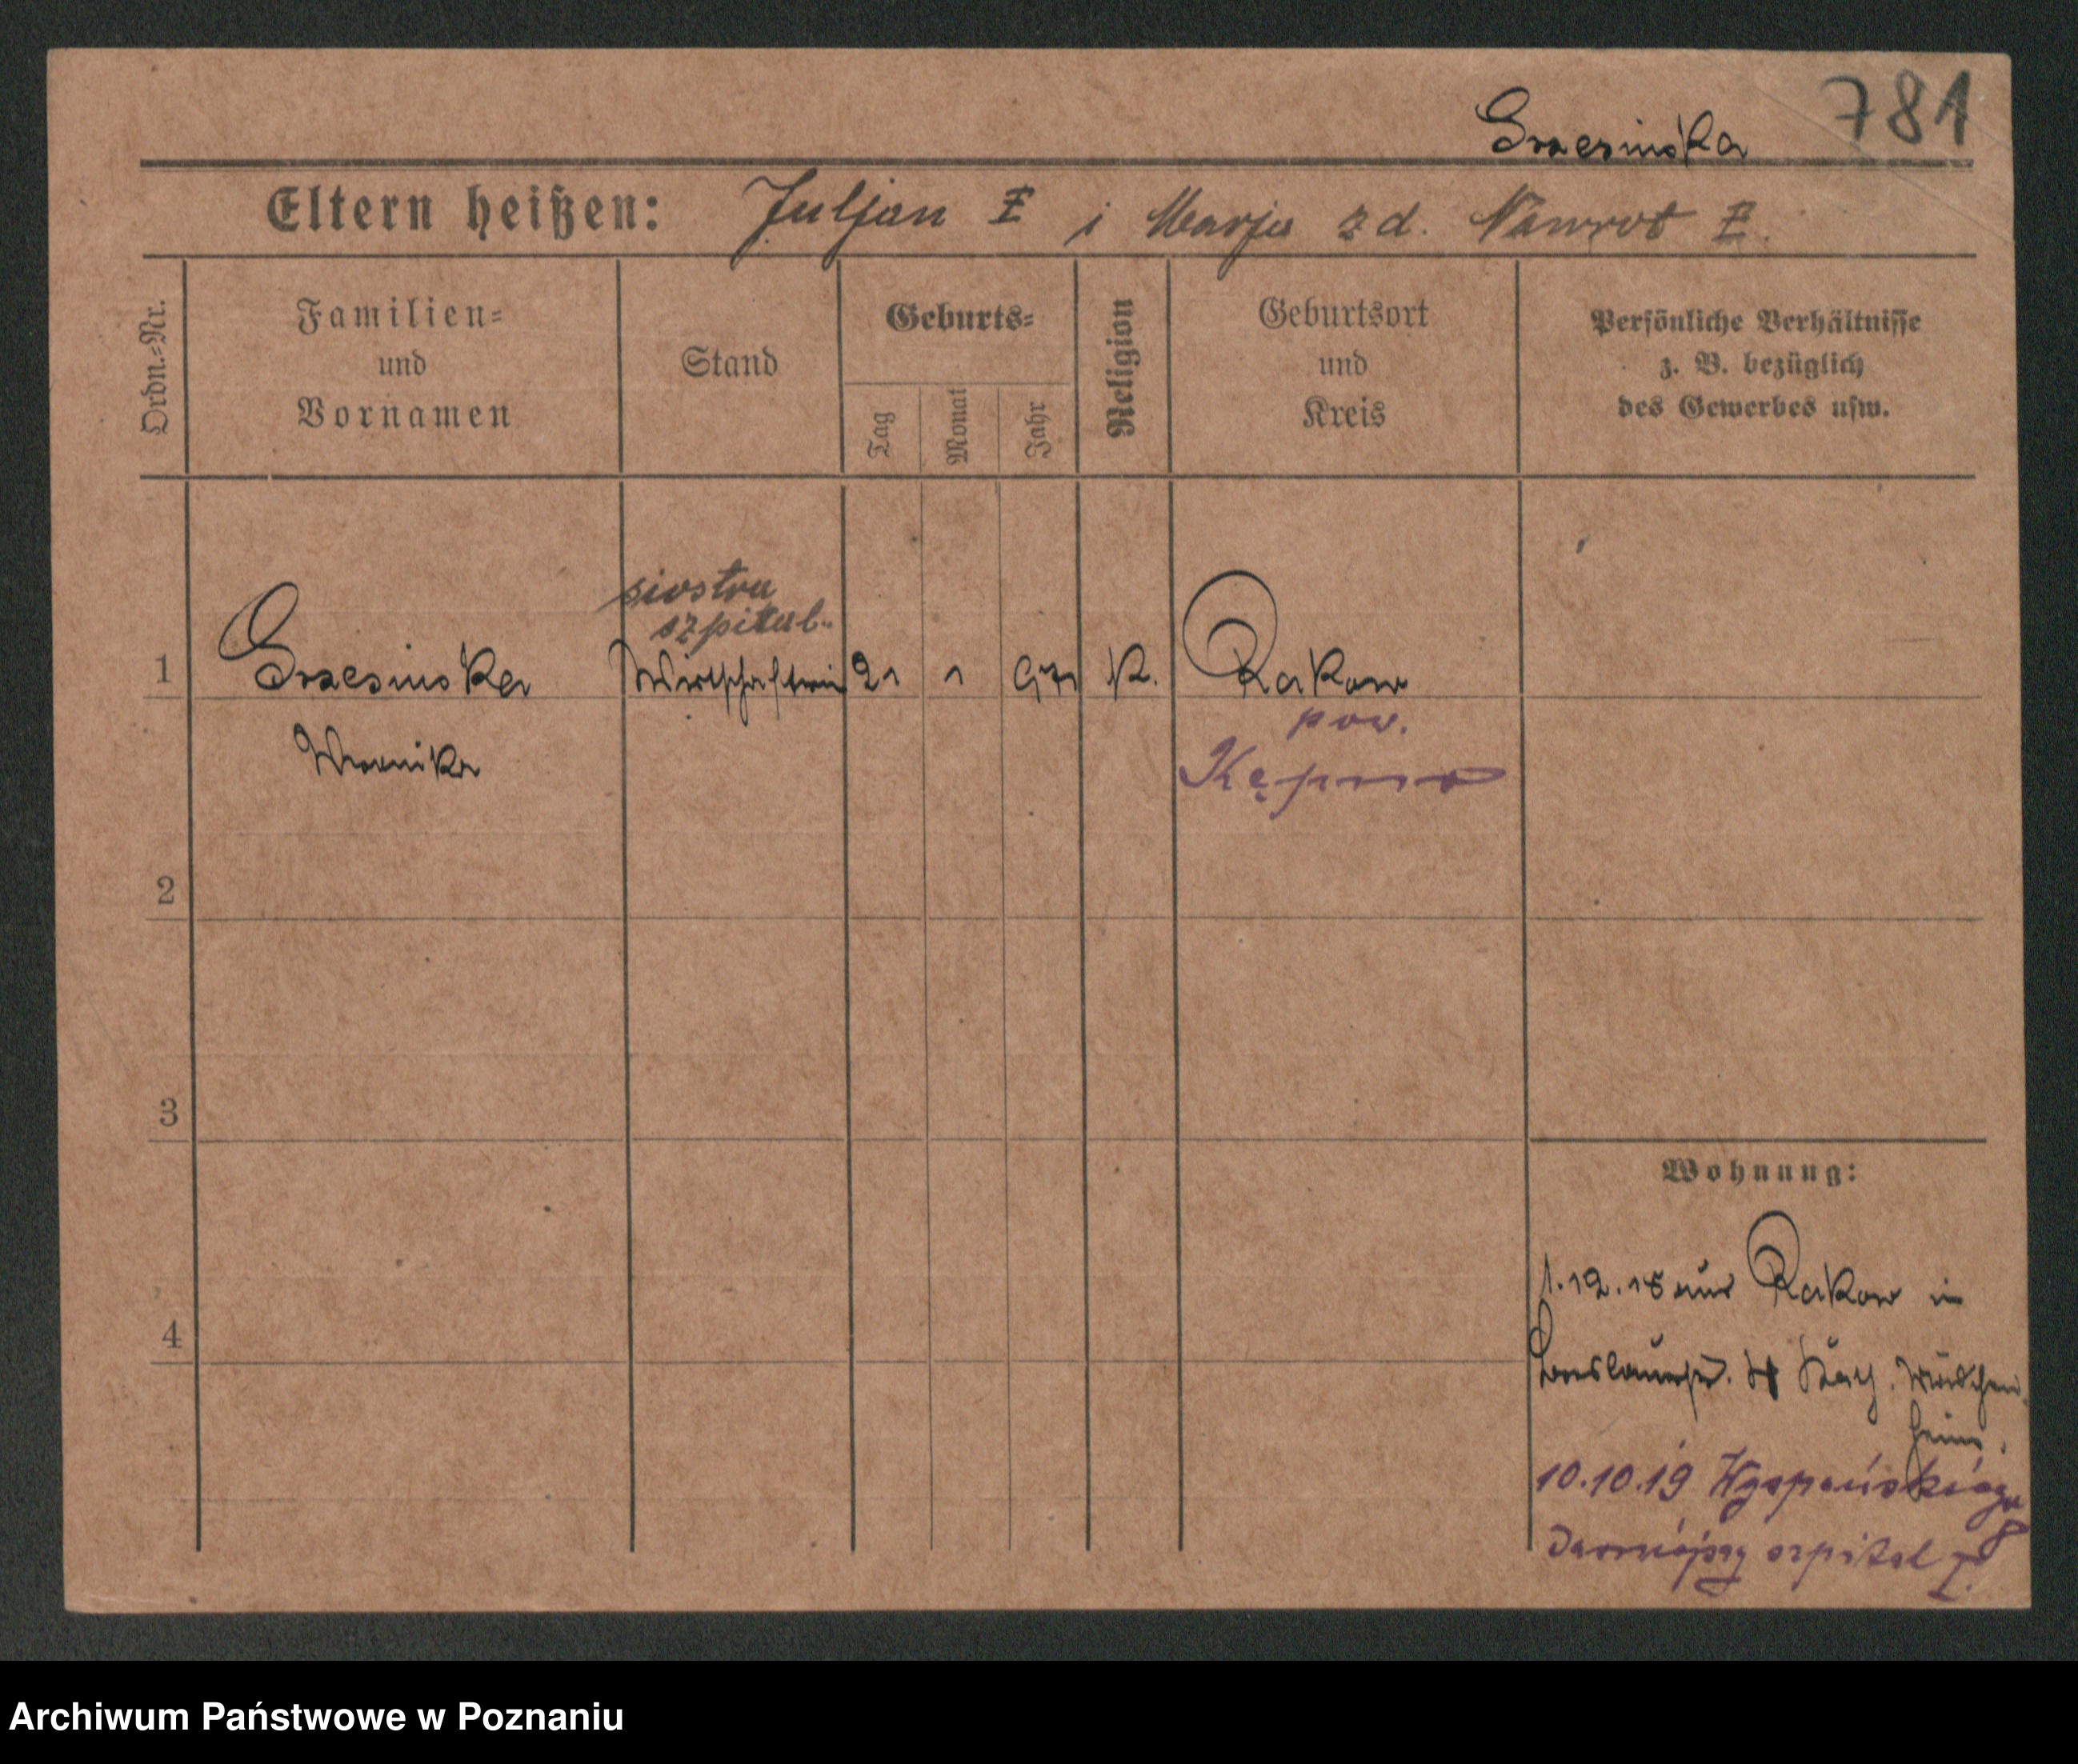 781
Grzesinska
Eltern heißen: Juljan Ɨ i Marja zd. Nawrot Ɨ.
Ordn.=Nr.
Familien=
und
Vornamen
Stand
Geburts=
Tag
Monat
Jahr
Religion
Geburtsort
und
Kreis
Persönliche Verhältnisse
z. B. bezüglich
des Gewerbes usw.
siostra
szpital.
1 Grzesinska 21 1 K. Rakow
pow.
Kępno
2
3
Wohnung:
1.12.18 aus Rakow in
4
heim.
10.10.19
szpital
Archiwum Państwowe w Poznaniu